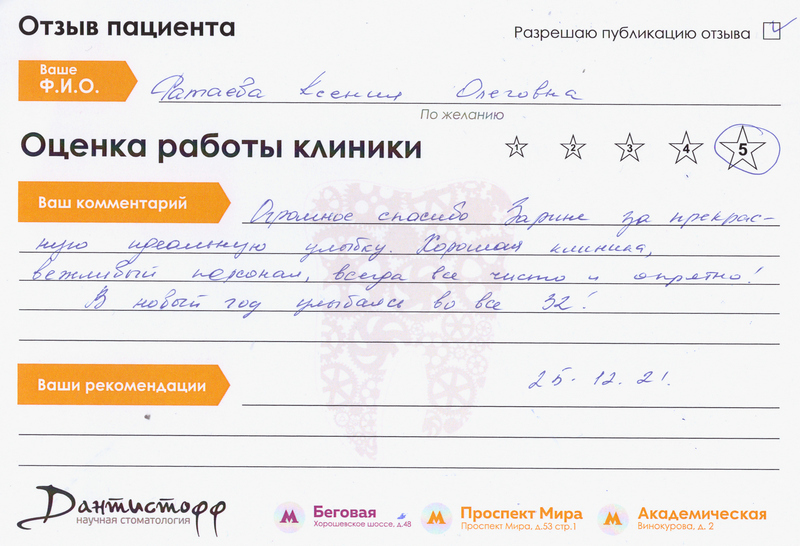 Отзыв пациента
Разрешаю публикацию отзыва
Ваше
Ф.И.О.
Фатаева Ксения Олеговна
По желанию
Оценка работы клиники
1 2 3 4 5
Ваш комментарий
Огромное спасибо Зарине за прекрас-
ную идеальную улыбку. Хорошая клиника,
вежливый персонал, всегда все чисто и опрятно!
В новый год улыбаясь во все 32!
Ваши рекомендации
25.12.21.
Дантистофф
научная стоматология
М Беговая
Хорошевское шоссе, д.48
М Проспект Мира
Проспект Мира, д.53 стр.1
М Академическая
Винокурова, д. 2